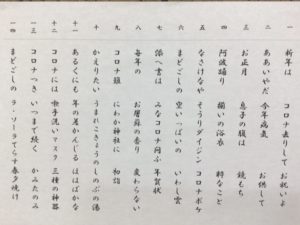 一 新年は コロナ去りして お祝いよ
二 ああいやだ 今年病気 お供して
三 お正月 息子の腹は 鏡もち
四 阿波踊り 揃いの浴衣 粋なこと
五 なさけなや そうりダイジン コロナボケ
六 まどごしの 空いっぱいの いわし雲
七 添へ書は みなコロナ問ふ 年賀状
八 毎年の お屠蘇の香り 変わらない
九 コロナ禍 にわか神社に 初詣
十 かえりたい うまれこきょうの しのぶの湯
十一 あるくにも 年の暑かんじる ははばかな
十二 コロナには 手洗いマスク 三種の神器
十三 コロナつき いつまで続く かみだのみ
十四 まどごしの ラ・ソーラてらす 夕焼け